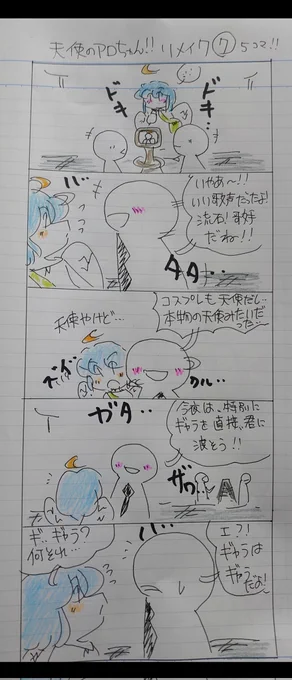 天使のアロちゃん!! リメイク⑦ 5コマ!!
ドキ
ドキ…
バ…
いやあ〜!!
いい歌声だったよ!
流石!歌手
だね!!
タタ…
コスプレも天使だし…
本物の天使みたいだ
った…
天使やけど…
クル…
ガタ…
今夜は、特別に
ギャラを直接、君に
渡そう!!
ザワ…
ギ…ギャラ?
何それ…
バ…
エ?!
ギャラは
ギャラだよ!